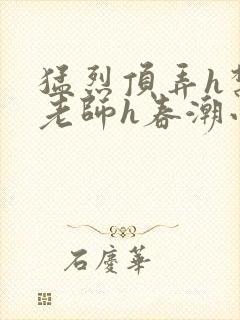 猛烈頂弄h
老師h春潮
石慶華